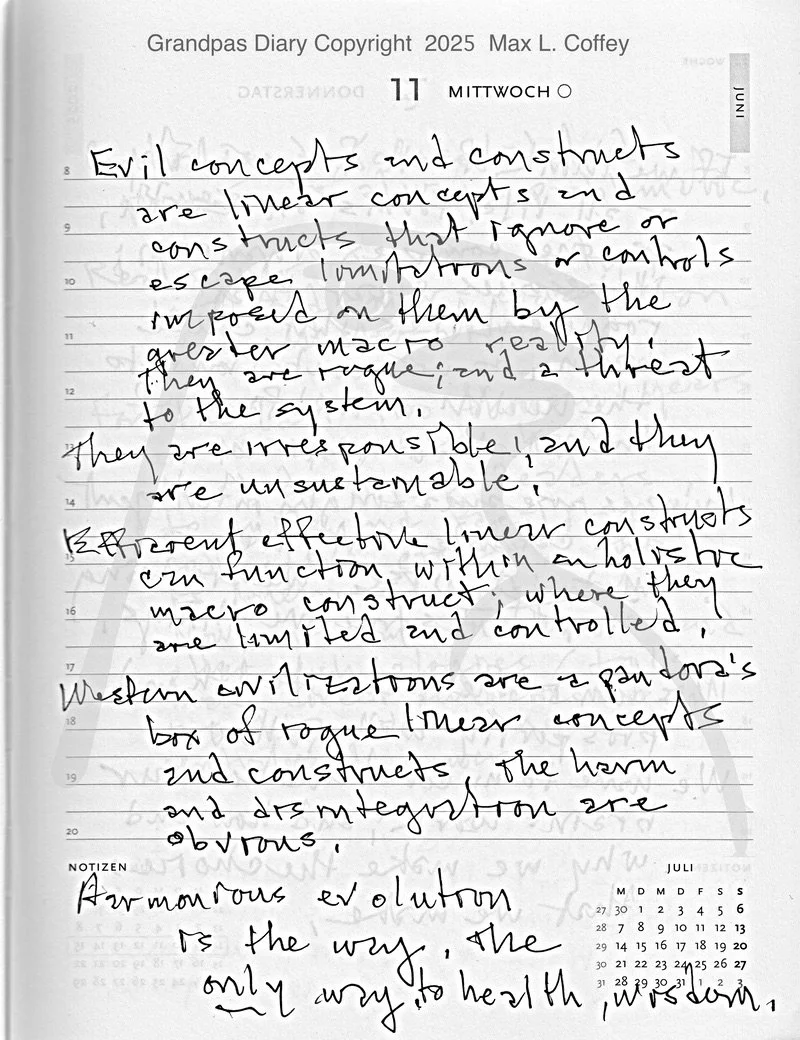 Grandpas Diary Copyright 2025 Max L. Coffey
11 MITTWOCH
JUNI
8 Evil concepts and constructs
are linear concepts and
9 constructs that ignore or
10 escape limitations or controls
imposed on them by the
11 greater macro reality.
They are rogue; and a threat
12 to the system.
13 They are irresponsible, and they
are unsustainable!
14
Efficient effective linear constructs
15 can function within an holistic
16 macro construct; where they
are limited and controlled.
17
Western civilizations are a pandora's
18 box of rogue linear concepts
19 and constructs, the harm
and disintegration are
20 obvious.
NOTIZEN
Harmonious evolution
is the way, the
only way, to health, wisdom.
JULI
M D M D F S S
27 30 1 2 3 4 5 6
28 7 8 9 10 11 12 13
29 14 15 16 17 18 19 20
30 21 22 23 24 25 26 27
31 28 29 30 31 1 2 3